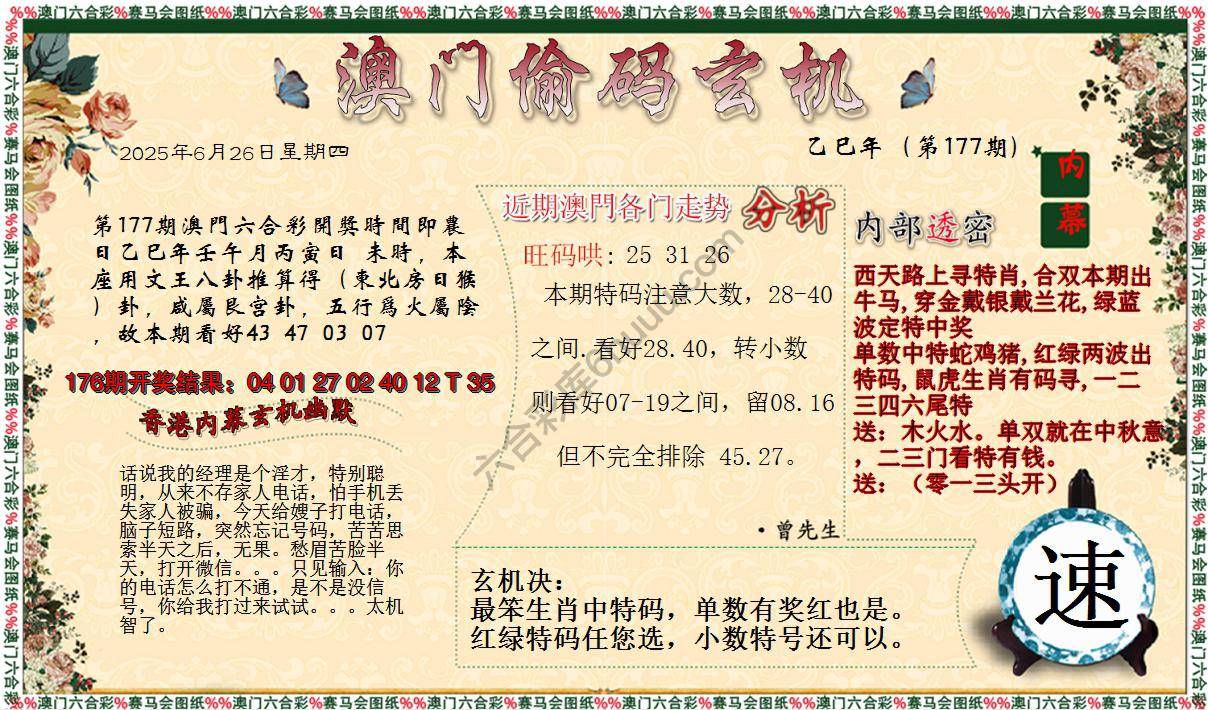 %%澳门六合彩%赛马会图纸%%澳门六合彩%赛马会图纸%%澳门六合彩%赛马会图纸
澳门偷码玄机
2025年6月26日星期四
乙巳年（第177期）
内
幕
第177期澳門六合彩開獎時間即農
日乙巳年壬午月丙寅日 未時，本
座用文王八卦推算得（東北房日猴
）卦，咸屬艮宫卦，五行爲火屬陰
，故本期看好43 47 03 07
176期开奖结果：04 01 27 02 40 12 T 35
香港内幕玄机幽默
话说我的经理是个淫才，特别聪
明，从来不存家人电话，怕手机丢
失家人被骗，今天给嫂子打电话，
脑子短路，突然忘记号码，苦苦思
索半天之后，无果。愁眉苦脸半
天，打开微信。。。只见输入：你
的电话怎么打不通，是不是没信
号，你给我打过来试试。。。太机
智了。
近期澳門各门走势 分析
旺码哄：25 31 26
本期特码注意大数，28-40
之间.看好28.40，转小数
则看好07-19之间，留08.16
但不完全排除 45.27。
·曾先生
内部透密
西天路上寻特肖,合双本期出
牛马,穿金戴银戴兰花,绿蓝
波定特中奖
单数中特蛇鸡猪,红绿两波出
特码,鼠虎生肖有码寻,一二
三四六尾特
送：木火水。单双就在中秋意
，二三门看特有钱。
送：（零一三头开）
玄机决：
最笨生肖中特码，单数有奖红也是。
红绿特码任您选，小数特号还可以。
速